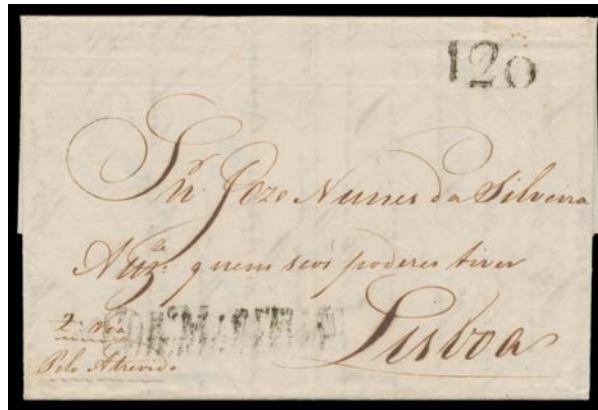 120
Snr. Joze Nunes da Silveira
Auz.cia quem seos poderes tiver
2a. via
Lisboa
Pelo Atrevido